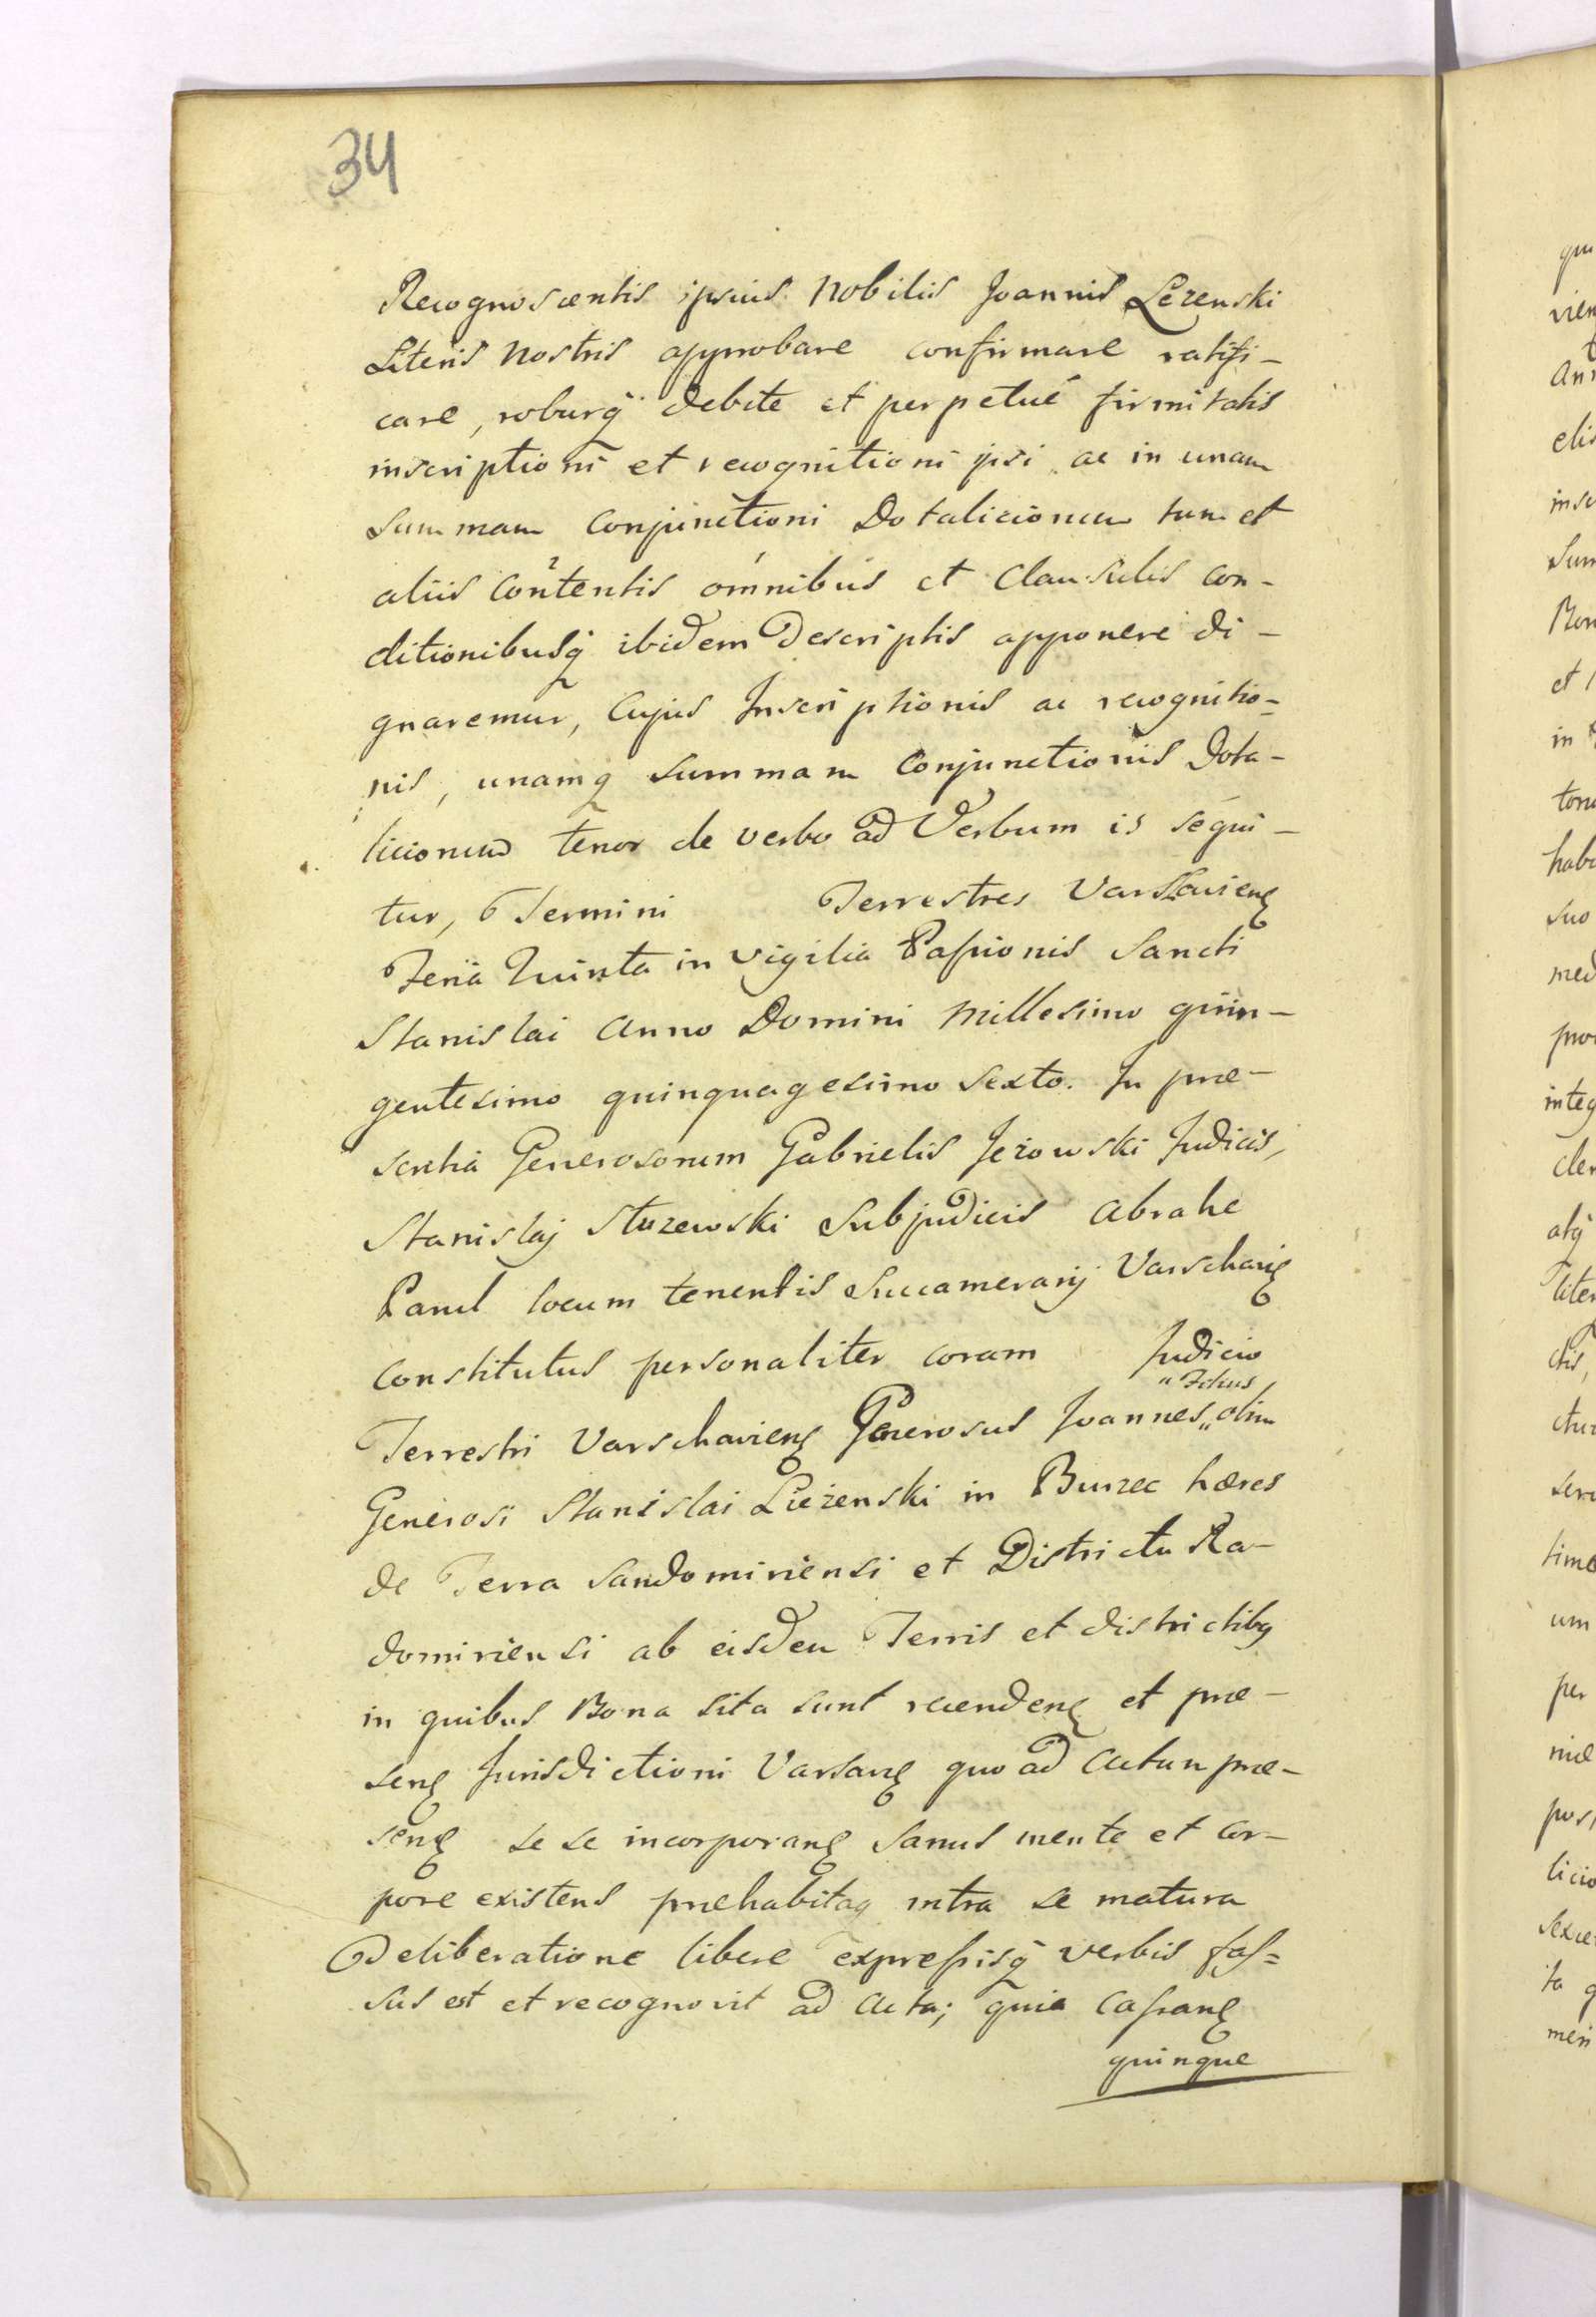 34
Recognoscentis ipsius Nobilis Joannis Lezenski
Literis Nostris approbare confirmare ratifi-
care, roburq̃ debite et perpetué firmitatis
inscriptioni et recognitioni ipsi ac in unam
Summam Conjunctioni Dotalicionem tum et
aliis Contentis omnibus et Clausulis con-
ditionibusq̃ ibidem Descriptis apponere di-
gnaremur, Cujus Inscriptionis ac recognitio=
nis, unamq̃ summam Conjunctionis Dota-
licionem tenor de verbo ad Verbum is sequi-
tur, Termini Terrestres Varsavien̨
Feria Quinta in vigilia Paſsionis Sancti
Stanislai Anno Domini Millesimo quin-
gentesimo quinquagesimo Sexto. In præ-
sentia Generosorum Gabrielis Jeżowski Judicis,
Stanislaj Stuzewski Subjudicis Abrahe
Parul locum tenentis Succamerarij Varschavię
Constitutus personaliter coram Judicio
Terrestri Varschavien̨ Generosus Joannes „olim
Generosi Stanislai Lieżenski in Burzec hæres
de Terra Sandomiriensi et Districtu Ra-
domiriensi ab eisdem Terris et districtibq
in quibus Bona sita sunt recenden̨ et præ-
sen̨ Jurisdictioni Varsavę quo ad Actum præ-
sen̨ se se incorporan̨ Sanus mente et Cor-
pore existens præhabitaq intra se matura
Deliberatione libere expreſsisq̃ verbis faſ=
sus est et recognovit ad Acta; quia Caſsan̨
quinque